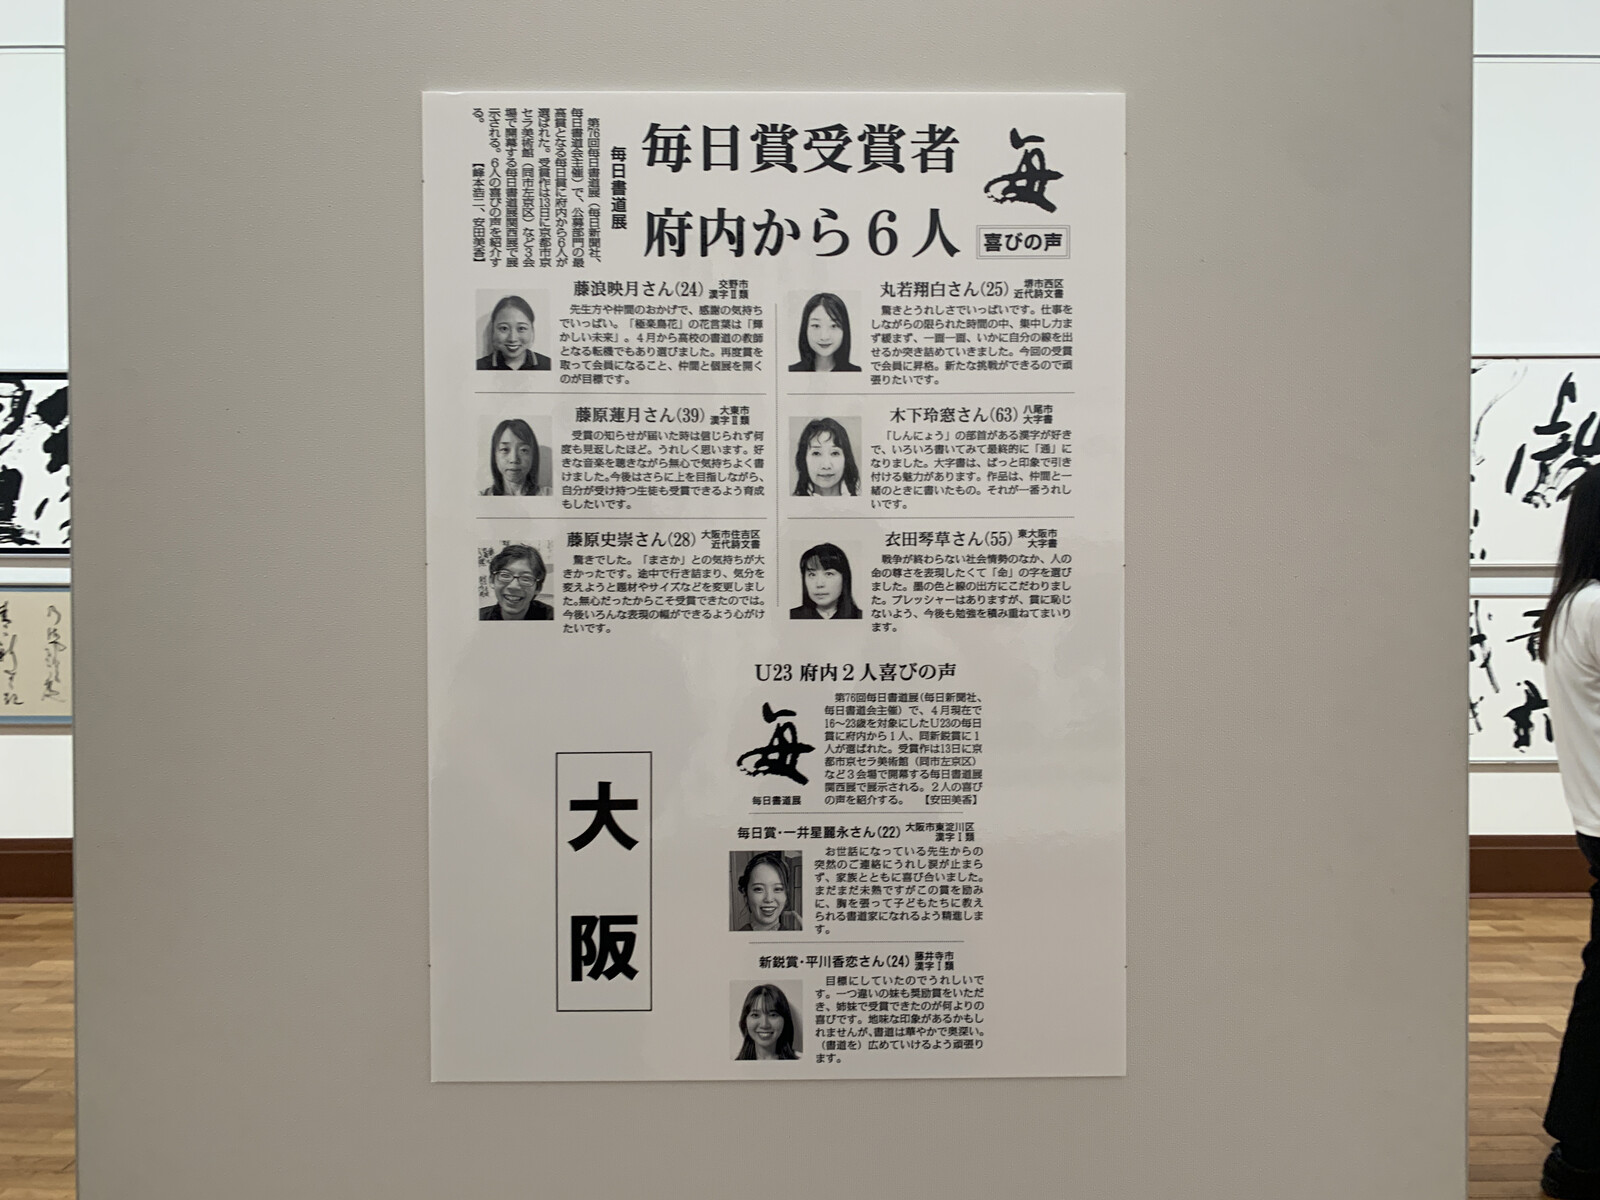 毎
喜びの声
毎日賞受賞者
府内から6人
毎日書道展
第76回毎日書道展(毎日新聞社、
毎日書道会主催)で、公募部門の最
高賞となる毎日賞に府内から6人が
選ばれた。受賞作は13日に京都市京
セラ美術館(同市左京区)など3会
場で開幕する毎日書道展関西展で展
示される。6人の喜びの声を紹介す
る。【峰本浩二、安田美香】
丸若翔白さん(25) 堺市西区
近代詩文書
驚きとうれしさでいっぱいです。仕事を
しながらの限られた時間の中、集中し力ま
ず緩まず、一画一画、いかに自分の線を出
せるか突き詰めていきました。今回の受賞
で会員に昇格。新たな挑戦ができるので頑
張りたいです。
木下玲窓さん(63) 八尾市
大字書
「しんにょう」の部首がある漢字が好き
で、いろいろ書いてみて最終的に「通」に
なりました。大字書は、ぱっと印象で引き
付ける魅力があります。作品は、仲間と一
緒のときに書いたもの。それが一番うれし
いです。
衣田琴草さん(55) 東大阪市
大字書
戦争が終わらない社会情勢のなか、人の
命の尊さを表現したくて「命」の字を選び
ました。墨の色と線の出方にこだわりまし
た。プレッシャーはありますが、賞に恥じ
ないよう、今後も勉強を積み重ねてまいり
ます。
藤浪映月さん(24) 交野市
漢字Ⅱ類
先生方や仲間のおかげで、感謝の気持ち
でいっぱい。「極楽鳥花」の花言葉は「輝
かしい未来」。4月から高校の書道の教師
となる転機でもあり選びました。再度賞を
取って会員になること、仲間と個展を開く
のが目標です。
藤原蓮月さん(39) 大東市
漢字Ⅱ類
受賞の知らせが届いた時は信じられず何
度も見返したほど。うれしく思います。好
きな音楽を聴きながら無心で気持ちよく書
けました。今後はさらに上を目指しながら、
自分が受け持つ生徒も受賞できるよう育成
もしたいです。
藤原史崇さん(28) 大阪市住吉区
近代詩文書
驚きでした。「まさか」との気持ちが大
きかったです。途中で行き詰まり、気分を
変えようと題材やサイズなどを変更しまし
た。無心だったからこそ受賞できたのでは。
今後いろんな表現の幅ができるよう心がけ
たいです。
U23 府内2人喜びの声
毎
毎日書道展
第76回毎日書道展(毎日新聞社、
毎日書道会主催)で、4月現在で
16～23歳を対象にしたU23の毎日
賞に府内から1人、同新鋭賞に1
人が選ばれた。受賞作は13日に京
都市京セラ美術館(同市左京区)
など3会場で開幕する毎日書道展
関西展で展示される。2人の喜び
の声を紹介する。【安田美香】
毎日賞・一井星麗永さん(22) 大阪市東淀川区
漢字Ⅰ類
お世話になっている先生からの
突然のご連絡にうれし涙が止まら
ず、家族とともに喜び合いました。
まだまだ未熟ですがこの賞を励み
に、胸を張って子どもたちに教え
られる書道家になれるよう精進しま
す。
新鋭賞・平川香恋さん(24) 藤井寺市
漢字Ⅰ類
目標にしていたのでうれしいで
す。一つ違いの妹も奨励賞をいただ
き、姉妹で受賞できたのが何よりの
喜びです。地味な印象があるかもし
れませんが、書道は華やかで奥深い。
(書道を)広めていけるよう頑張り
ます。
大阪